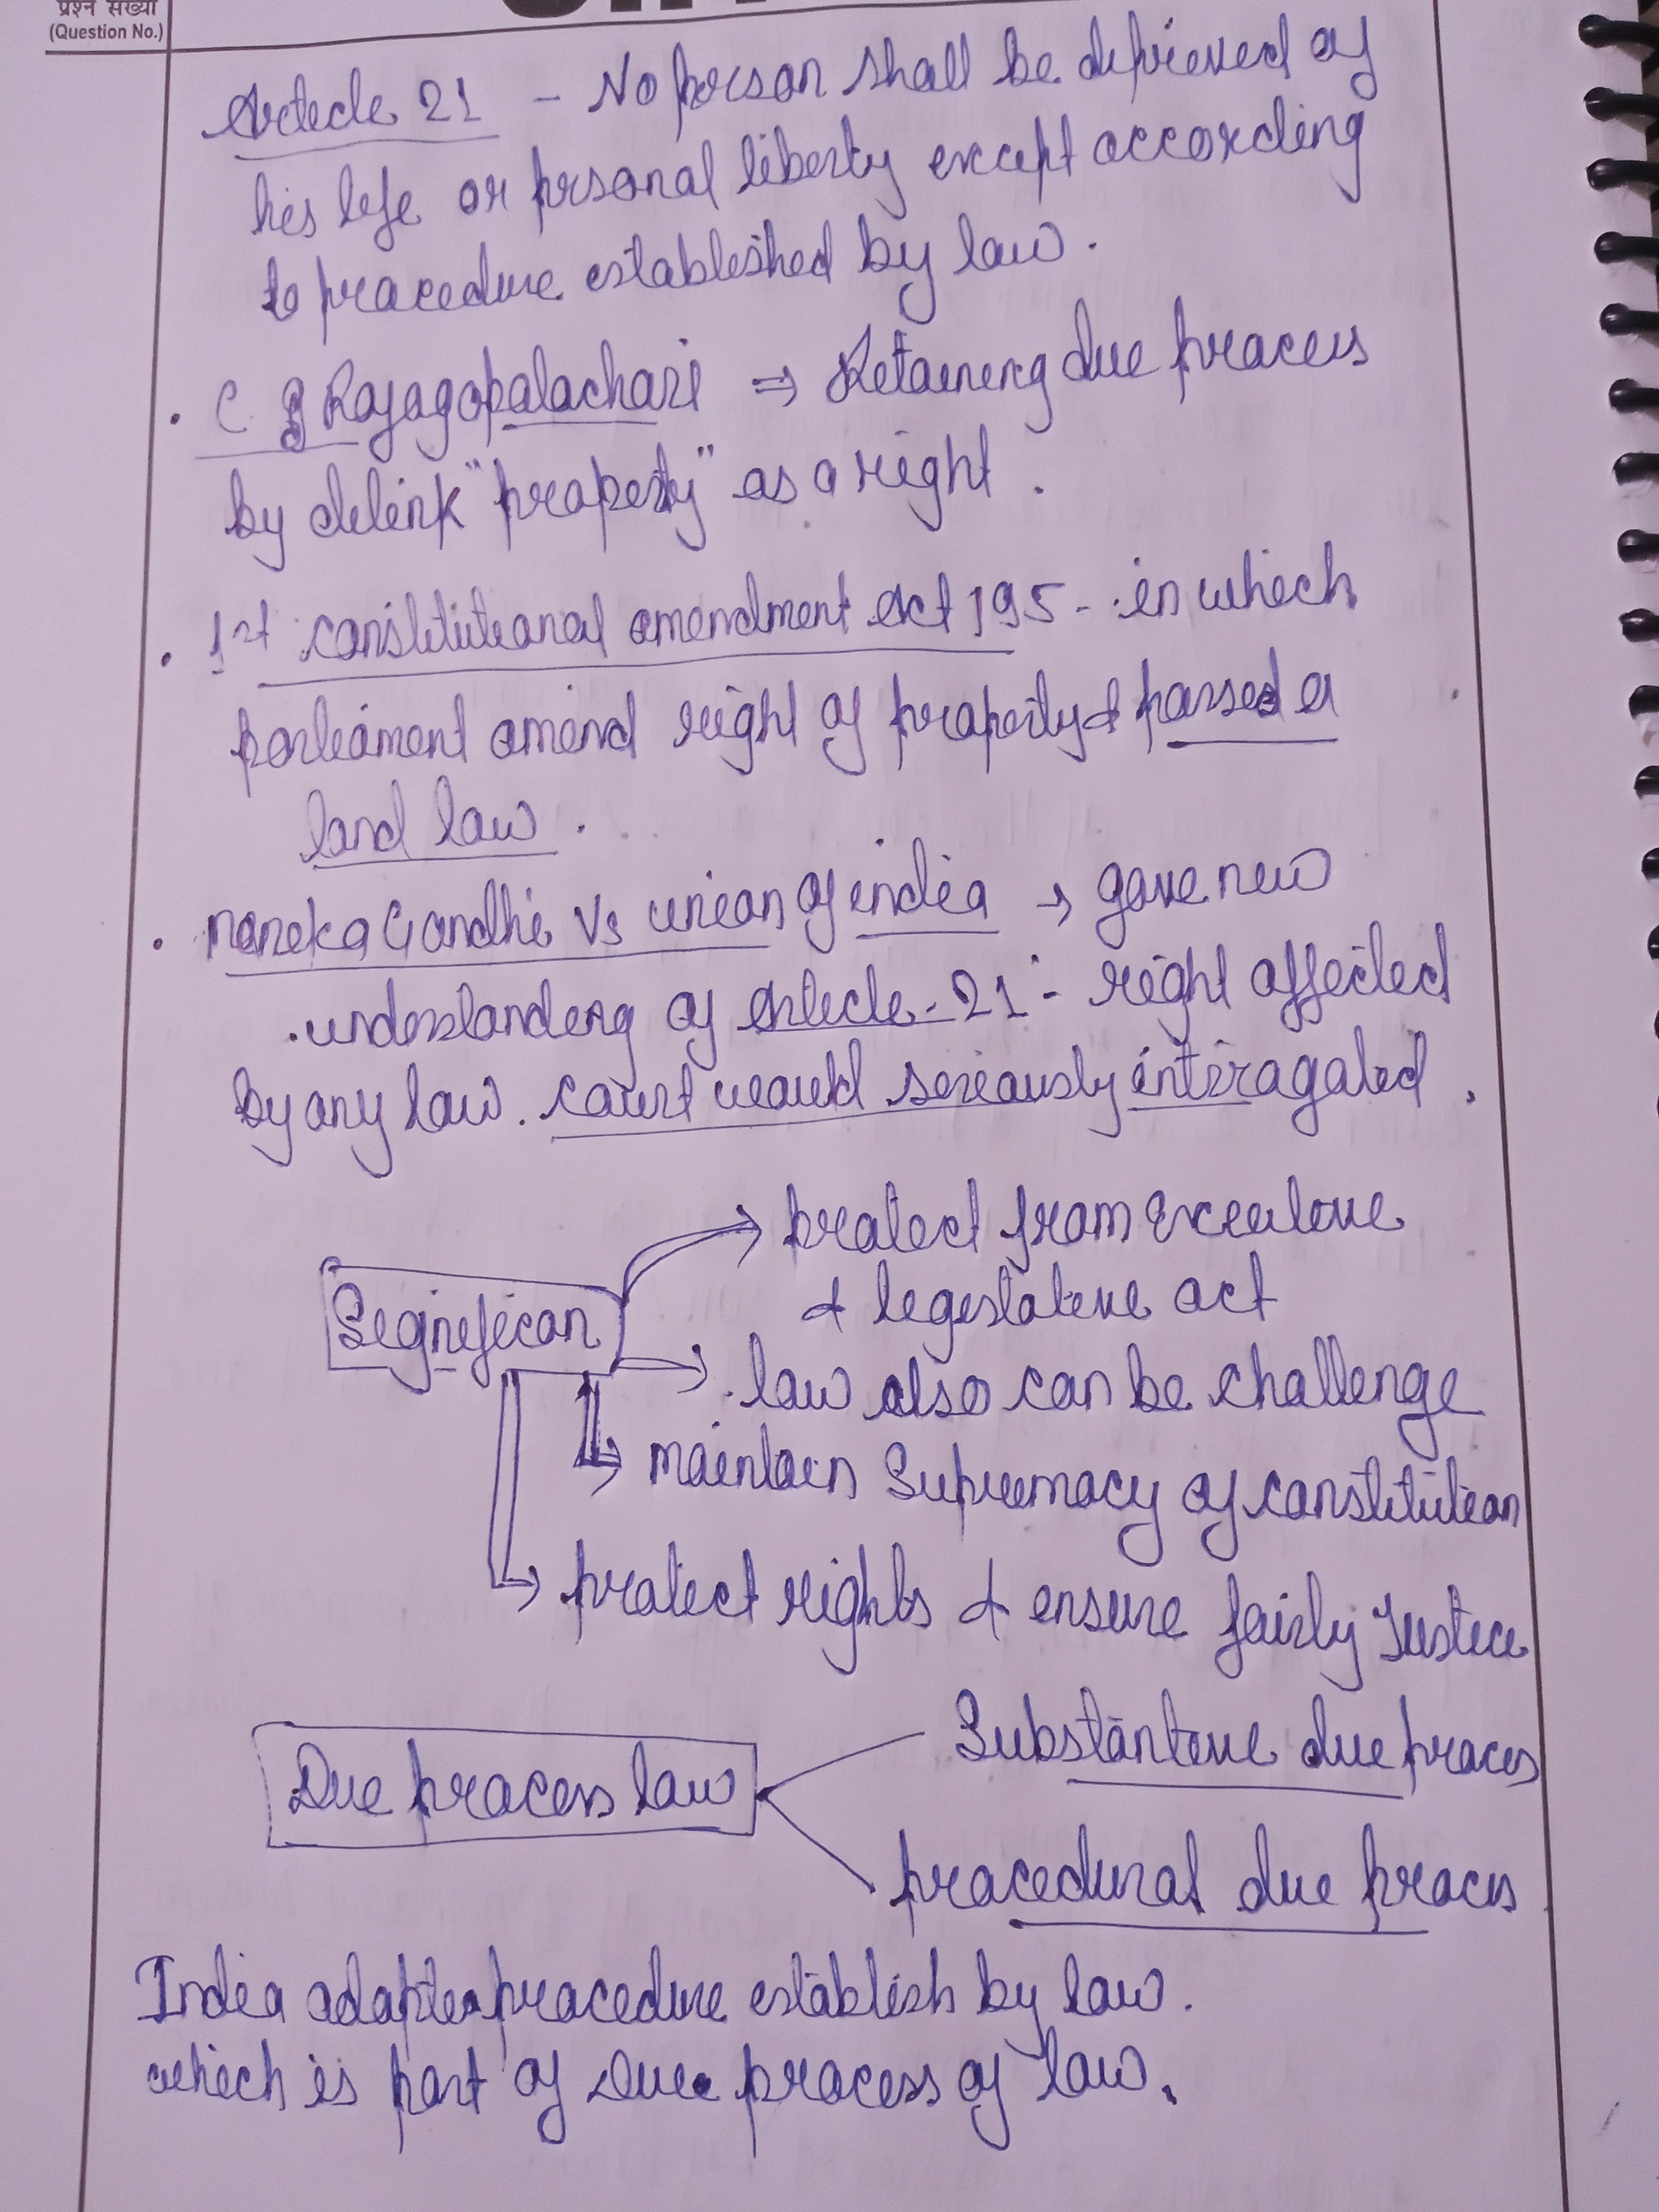 प्रश्न संख्या
(Question No.)
Article 21 - No person shall be deprieved of
his life or prsonal liberty except according
to procedure established by law.
. C Rajagopalachari ⇒ Retaining due process
by delink "property" as a right.
. 1st constitutional amendment act 195- in which
parliament amend right of property & passed a
land law.
. Maneka Gandhi Vs union of india → gave new
understanding of Article-21 :- right affected
by any law. court would seriously intrragated.
protect from Executive
& legislative act
Significan
law also can be challenge
maintain Supremacy of constitution
protect rights & ensure fairly Justice
Substantive due proces
Due process law
procedural due proces
India adapte procedure establish by law.
which is part of Due process of law.